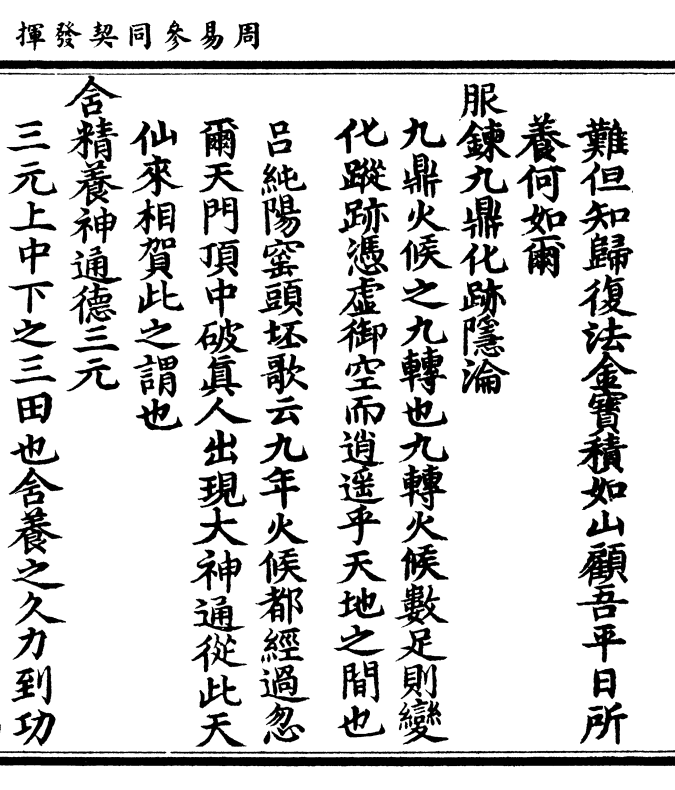 周易參同契發揮
難但知歸復法金寶積如山顧吾平日所
養何如爾
服鍊九鼎化跡隱淪
九鼎火候之九轉也九轉火候數足則變
化蹤跡憑虛御空而逍遥乎天地之間也
呂純陽窰頭坯歌云九年火候都經過忽
爾天門頂中破眞人出現大神通從此天
仙來相賀此之謂也
含精養神通德三元
三元上中下之三田也含養之久力到功